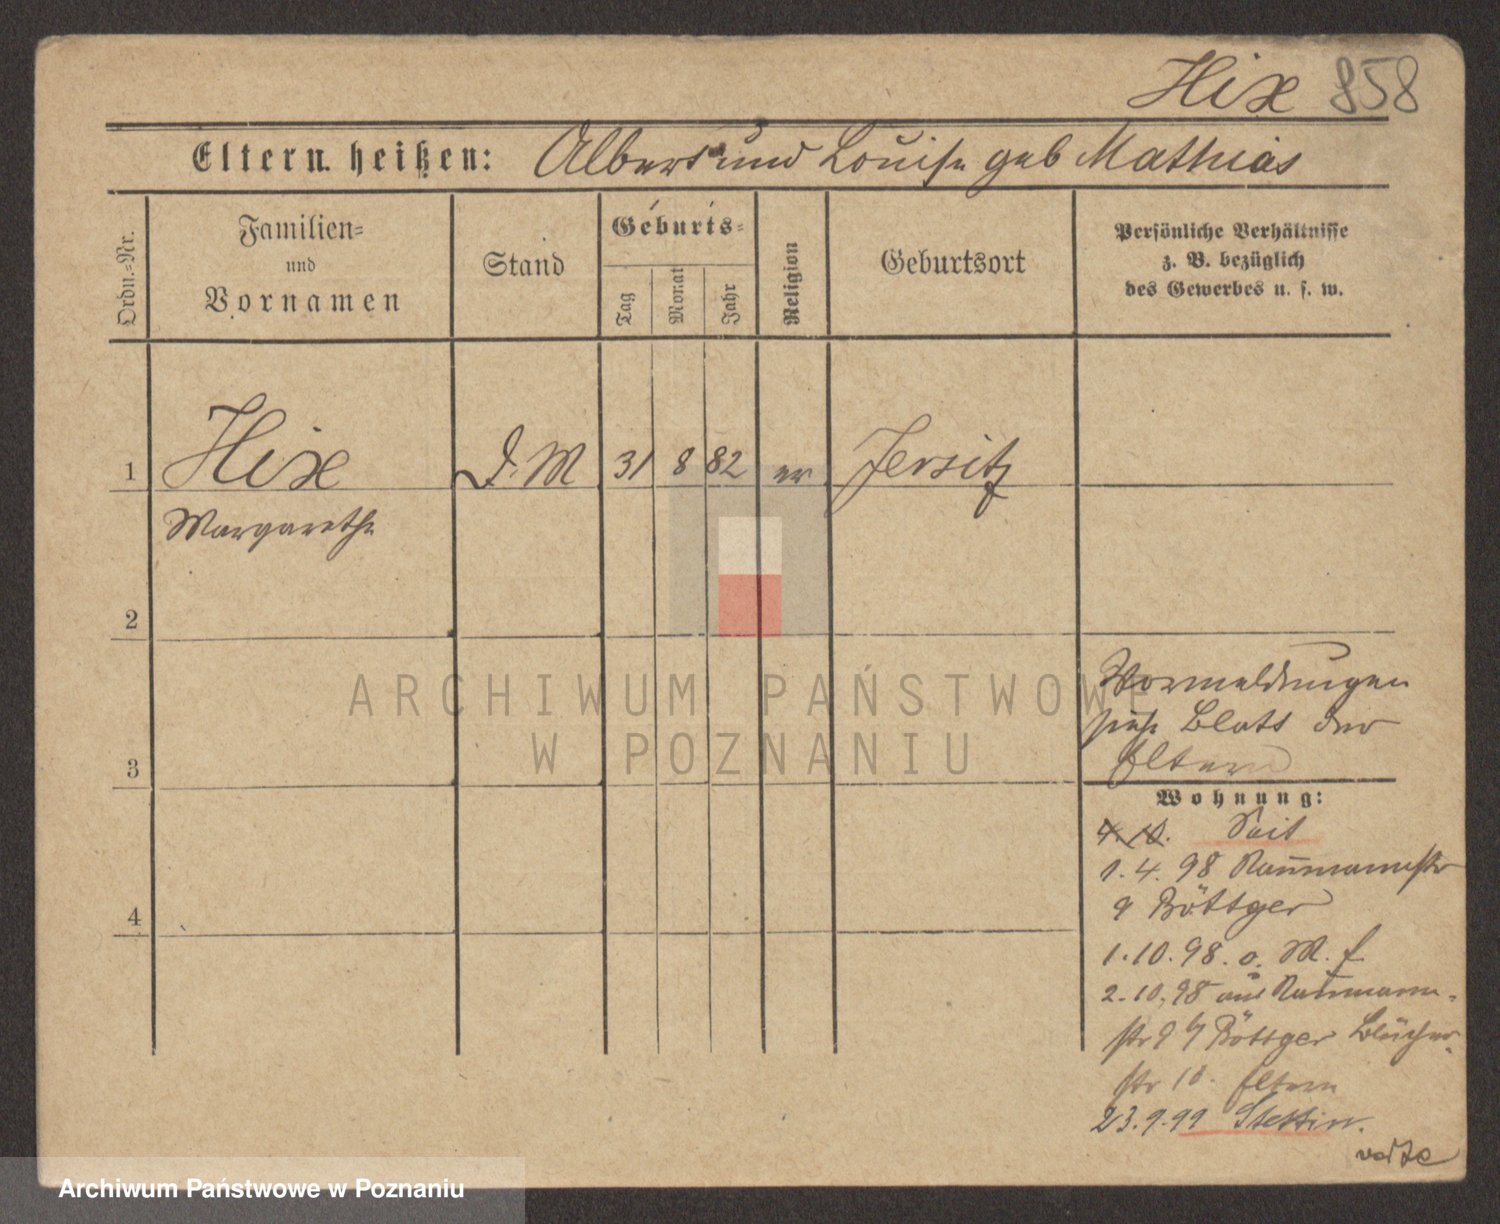 Hix 858
Eltern heißen: Albert und Louise geb Mathias
Ordn.=Nr.
Familien=
und
Vornamen
Stand
Geburts=
Tag
Monat
Jahr
Religion
Geburtsort
Persönliche Verhältnisse
z. B. bezüglich
des Gewerbes u. s. w.
1 Hix D. M 31 8 82 ev Jersitz
Margarethe
2
Vormeldungen
siehe Blatt der
Eltern
3
Wohnung:
4.10. Seit
1.4.98 Naumannstr
9 Böttger
4
1.10.98. o. M. f.
2.10.98 aus Naumann-
str 9 b/ Böttger Blücher
str 10. Eltern
23.9.99 Stettin.
verte
ARCHIWUM PAŃSTWOWE
W POZNANIU
Archiwum Państwowe w Poznaniu